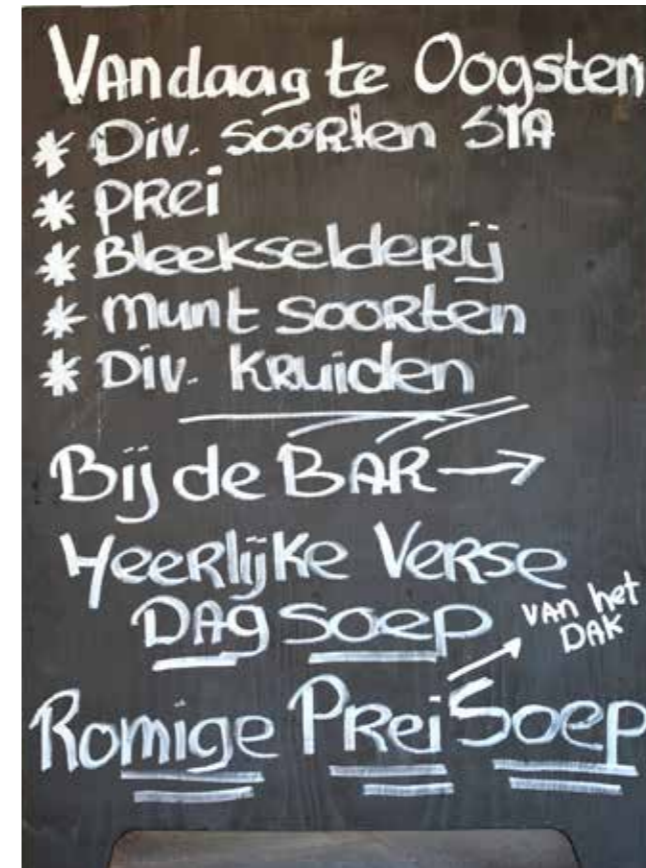 Vandaag te Oogsten
* Div. soorten SlA
* PRei
* Bleekselderij
* munt soorten
* Div. kruiden
Bij de BAR →
Heerlijke Verse
DAgsoep
VAN het
DAK
Romige PReiSoep